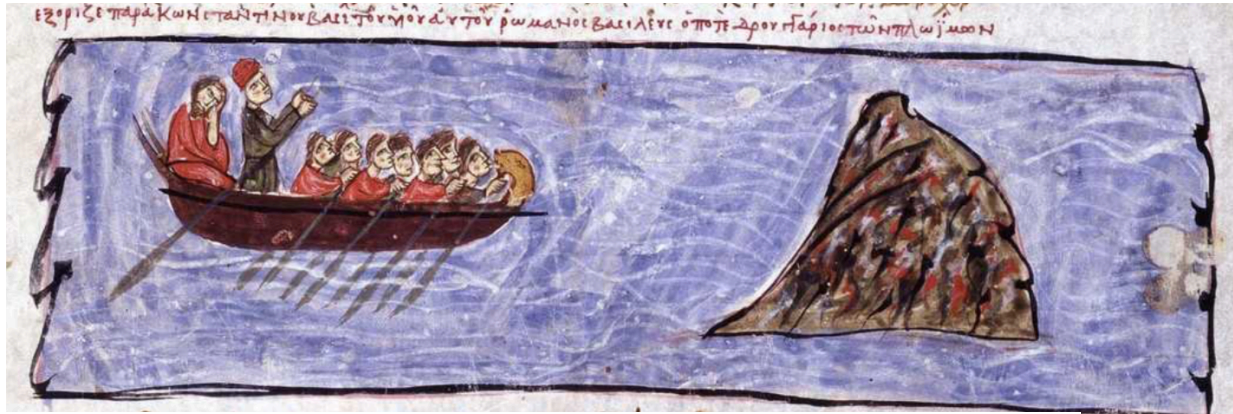 ἐξοριζε παρα Κωνσταντίνου βασι τοῦ υἱοῦ αυτοῦ ρωμανὸς βασιλεὺς ὁ ποτε δρουγγάριος τῶν πλωΐμων